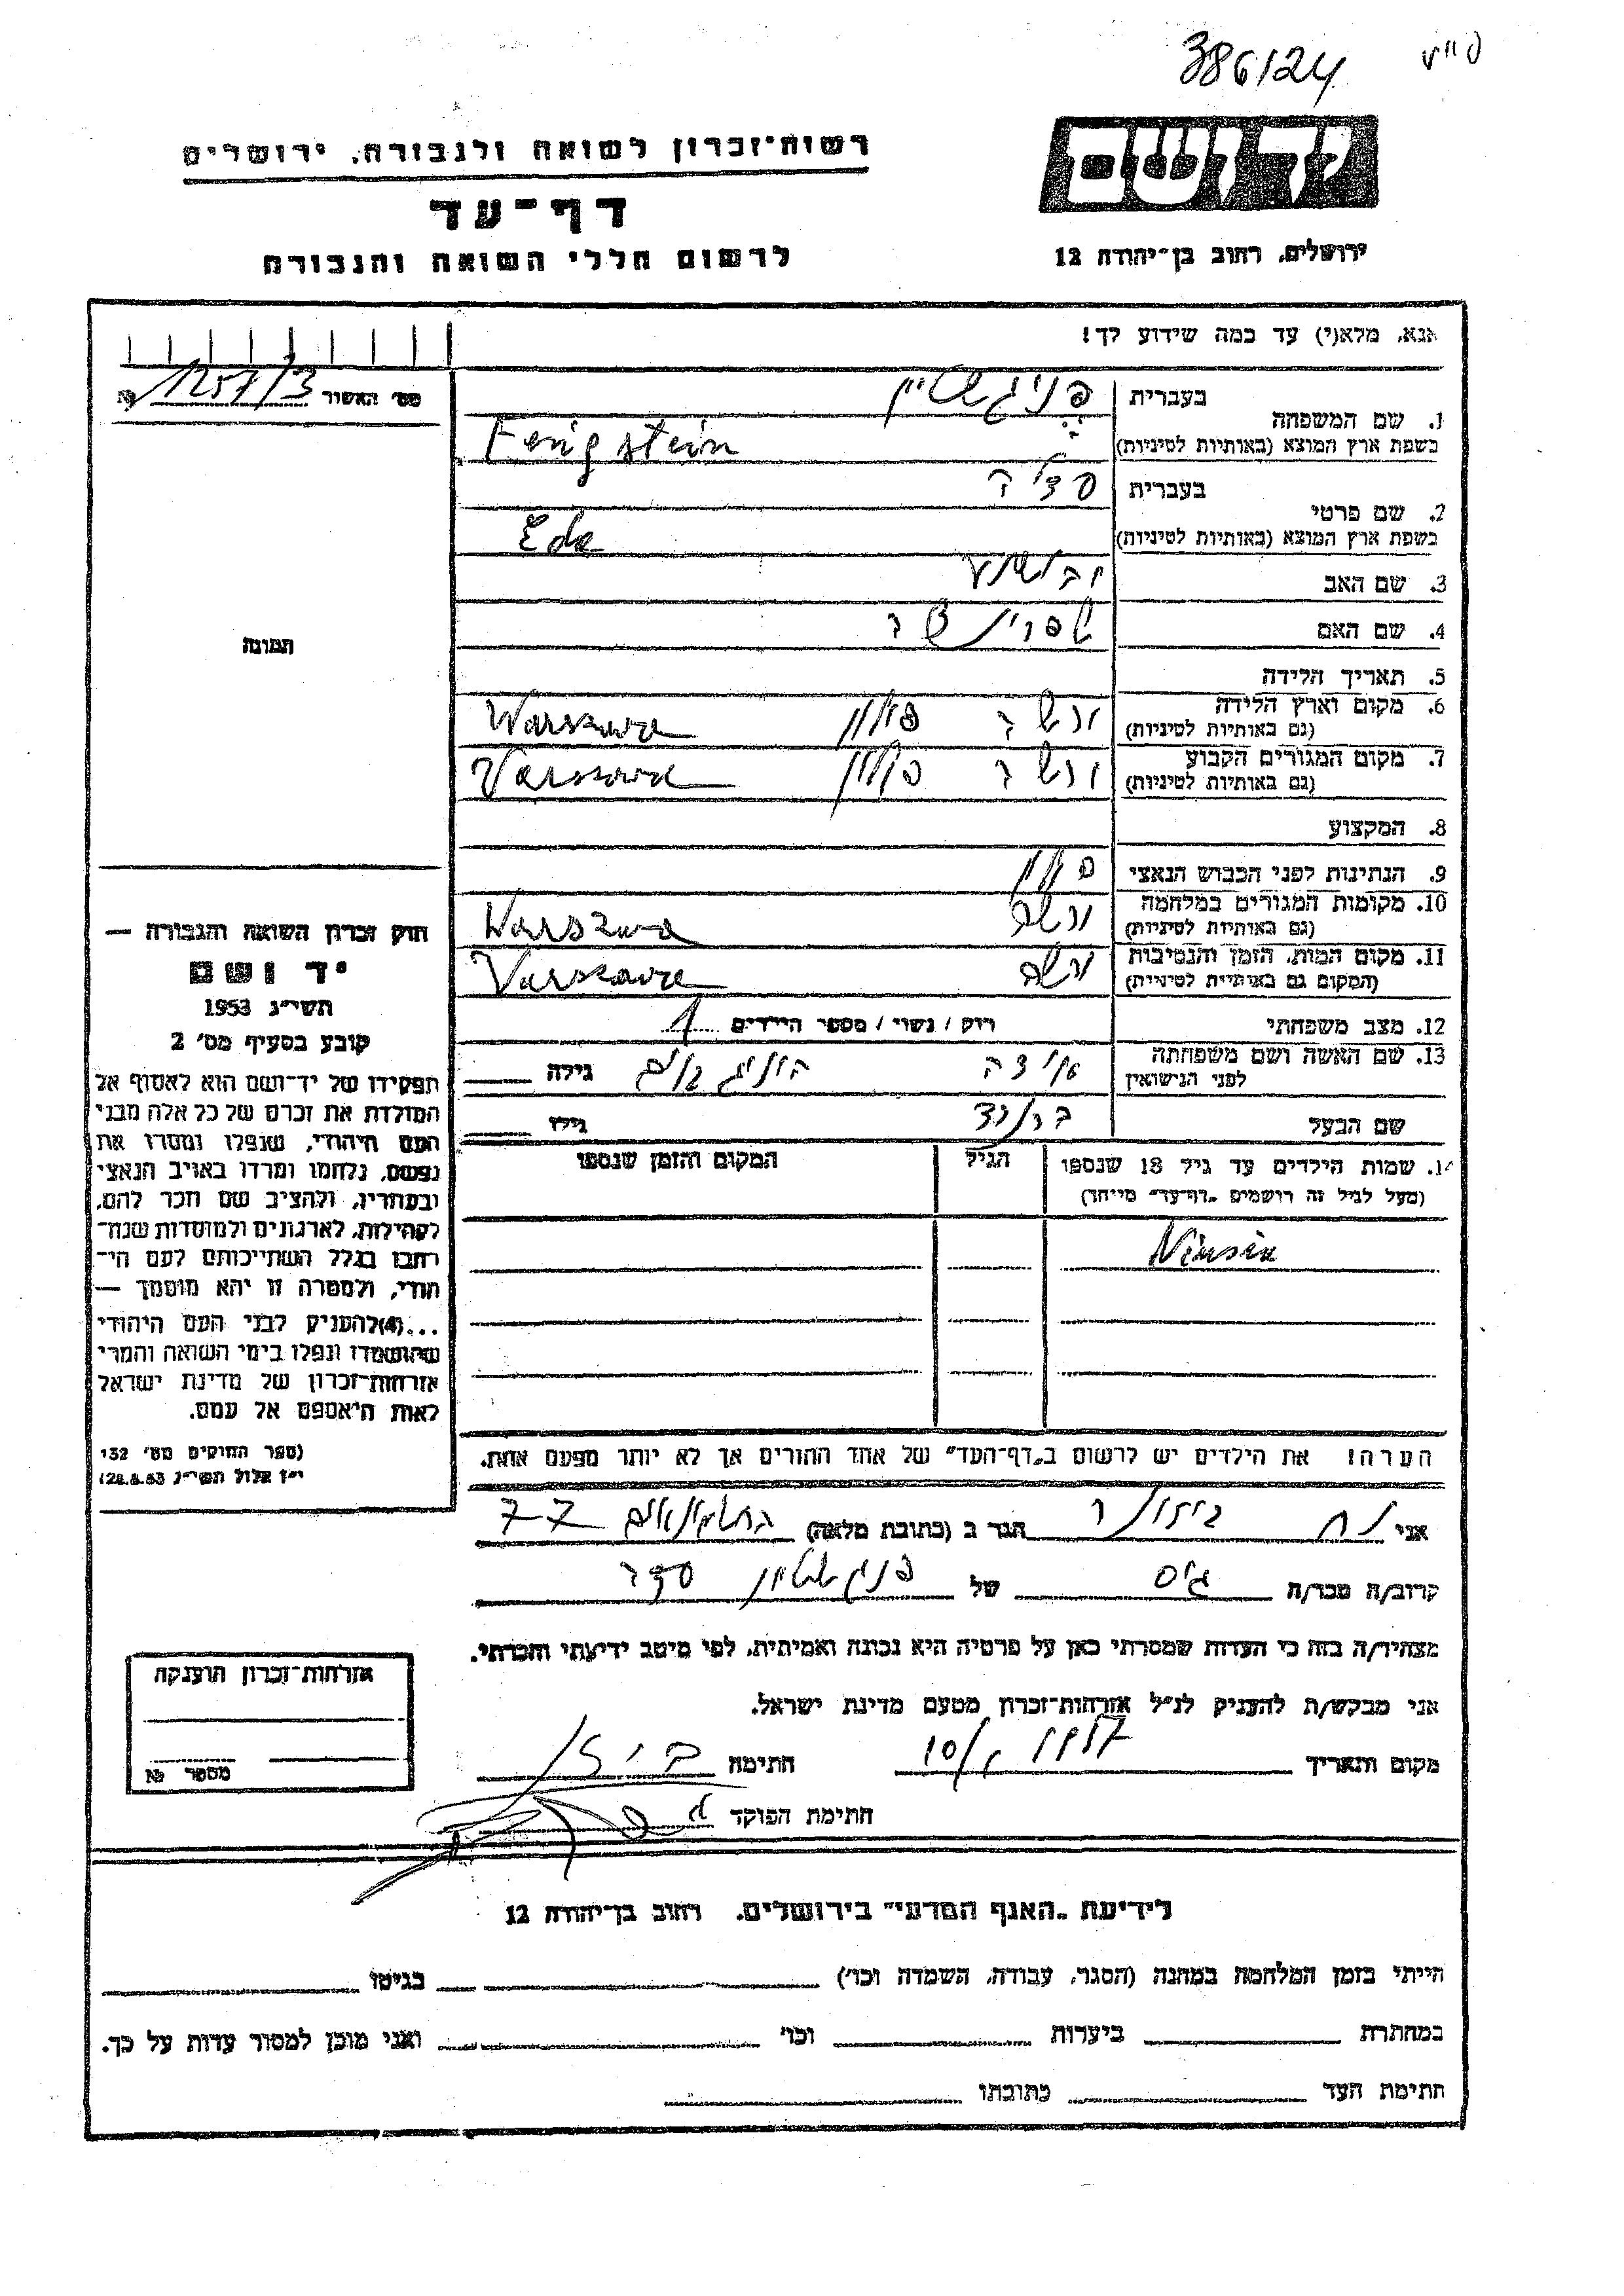 386/24
יד ושם
רשות־זכרון לשואה ולגבורה. ירושלים
דף־עד
לרשום חללי השואה והגבורה
ירושלים. רחוב בן־יהודה 12
אנא, מלא(י) עד כמה שידוע לך!
מס׳ האשור 1257/3 №
1. שם המשפחה
בעברית פניגשטיין
בשפת ארץ המוצא (באותיות לטיניות) Fenigstein
2. שם פרטי
בעברית
בשפת ארץ המוצא (באותיות לטיניות) Eda
3. שם האב
4. שם האם
5. תאריך הלידה
6. מקום וארץ הלידה
(גם באותיות לטיניות) ורשה פולין Warszawa
7. מקום המגורים הקבוע
(גם באותיות לטיניות) ורשה פולין Varszawa
8. המקצוע
9. הנתינות לפני הכבוש הנאצי פולין
10. מקומות המגורים במלחמה
(גם באותיות לטיניות) ורשה Warszawa
11. מקום המות, הזמן והנסיבות
(המקום גם באותיות לטיניות) ורשה Varszawa
12. מצב משפחתי רווק / נשוי / מספר הילדים 1
13. שם האשה ושם משפחתה
לפני הנישואין גילה
שם הבעל גילו
14. שמות הילדים עד גיל 18 שנספו
(מעל לגיל זה רושמים „דף־עד״ מיוחד)
הגיל
המקום והזמן שנספו
Niusia
הערה! את הילדים יש לרשום ב„דף־העד״ של אחד ההורים אך לא יותר מפעם אחת.
תמונה
חוק זכרון השואה והגבורה —
יד ושם
תשי״ג 1953
קובע בסעיף מס׳ 2
תפקידו של יד־ושם הוא לאסוף אל
המולדת את זכרם של כל אלה מבני
העם היהודי, שנפלו ומסרו את
נפשם, נלחמו ומרדו באויב הנאצי
ובעוזריו, ולהציב שם וזכר להם,
לקהילות, לארגונים ולמוסדות שנח־
רבו בגלל השתייכותם לעם הי־
הודי, ולמטרה זו יהא מוסמך —
...(4) להעניק לבני העם היהודי
שהושמדו ונפלו בימי השואה והמרי
אזרחות־זכרון של מדינת ישראל
לאות היאספם אל עמם.
(ספר החוקים מס׳ 132
י״ז אלול תשי״ג 28.8.53)
אני הגר ב (כתובת מלאה) 77
קרוב/ה מכר/ה גיס של פניגשטיין
מצהיר/ה בזה כי העדות שמסרתי כאן על פרטיה היא נכונה ואמיתית, לפי מיטב ידיעתי והכרתי.
אני מבקש/ת להעניק לנ״ל אזרחות־זכרון מטעם מדינת ישראל.
מקום ותאריך חתימה
חתימת הפוקד
אזרחות־זכרון הוענקה
מספר №
לידיעת „האגף המדעי״ בירושלים. רחוב בן־יהודה 12
הייתי בזמן המלחמה במחנה (הסגר, עבודה, השמדה וכו׳) בגיטו
במחתרת ביערות וכו׳ ואני מוכן למסור עדות על כך.
חתימת העד כתובתו